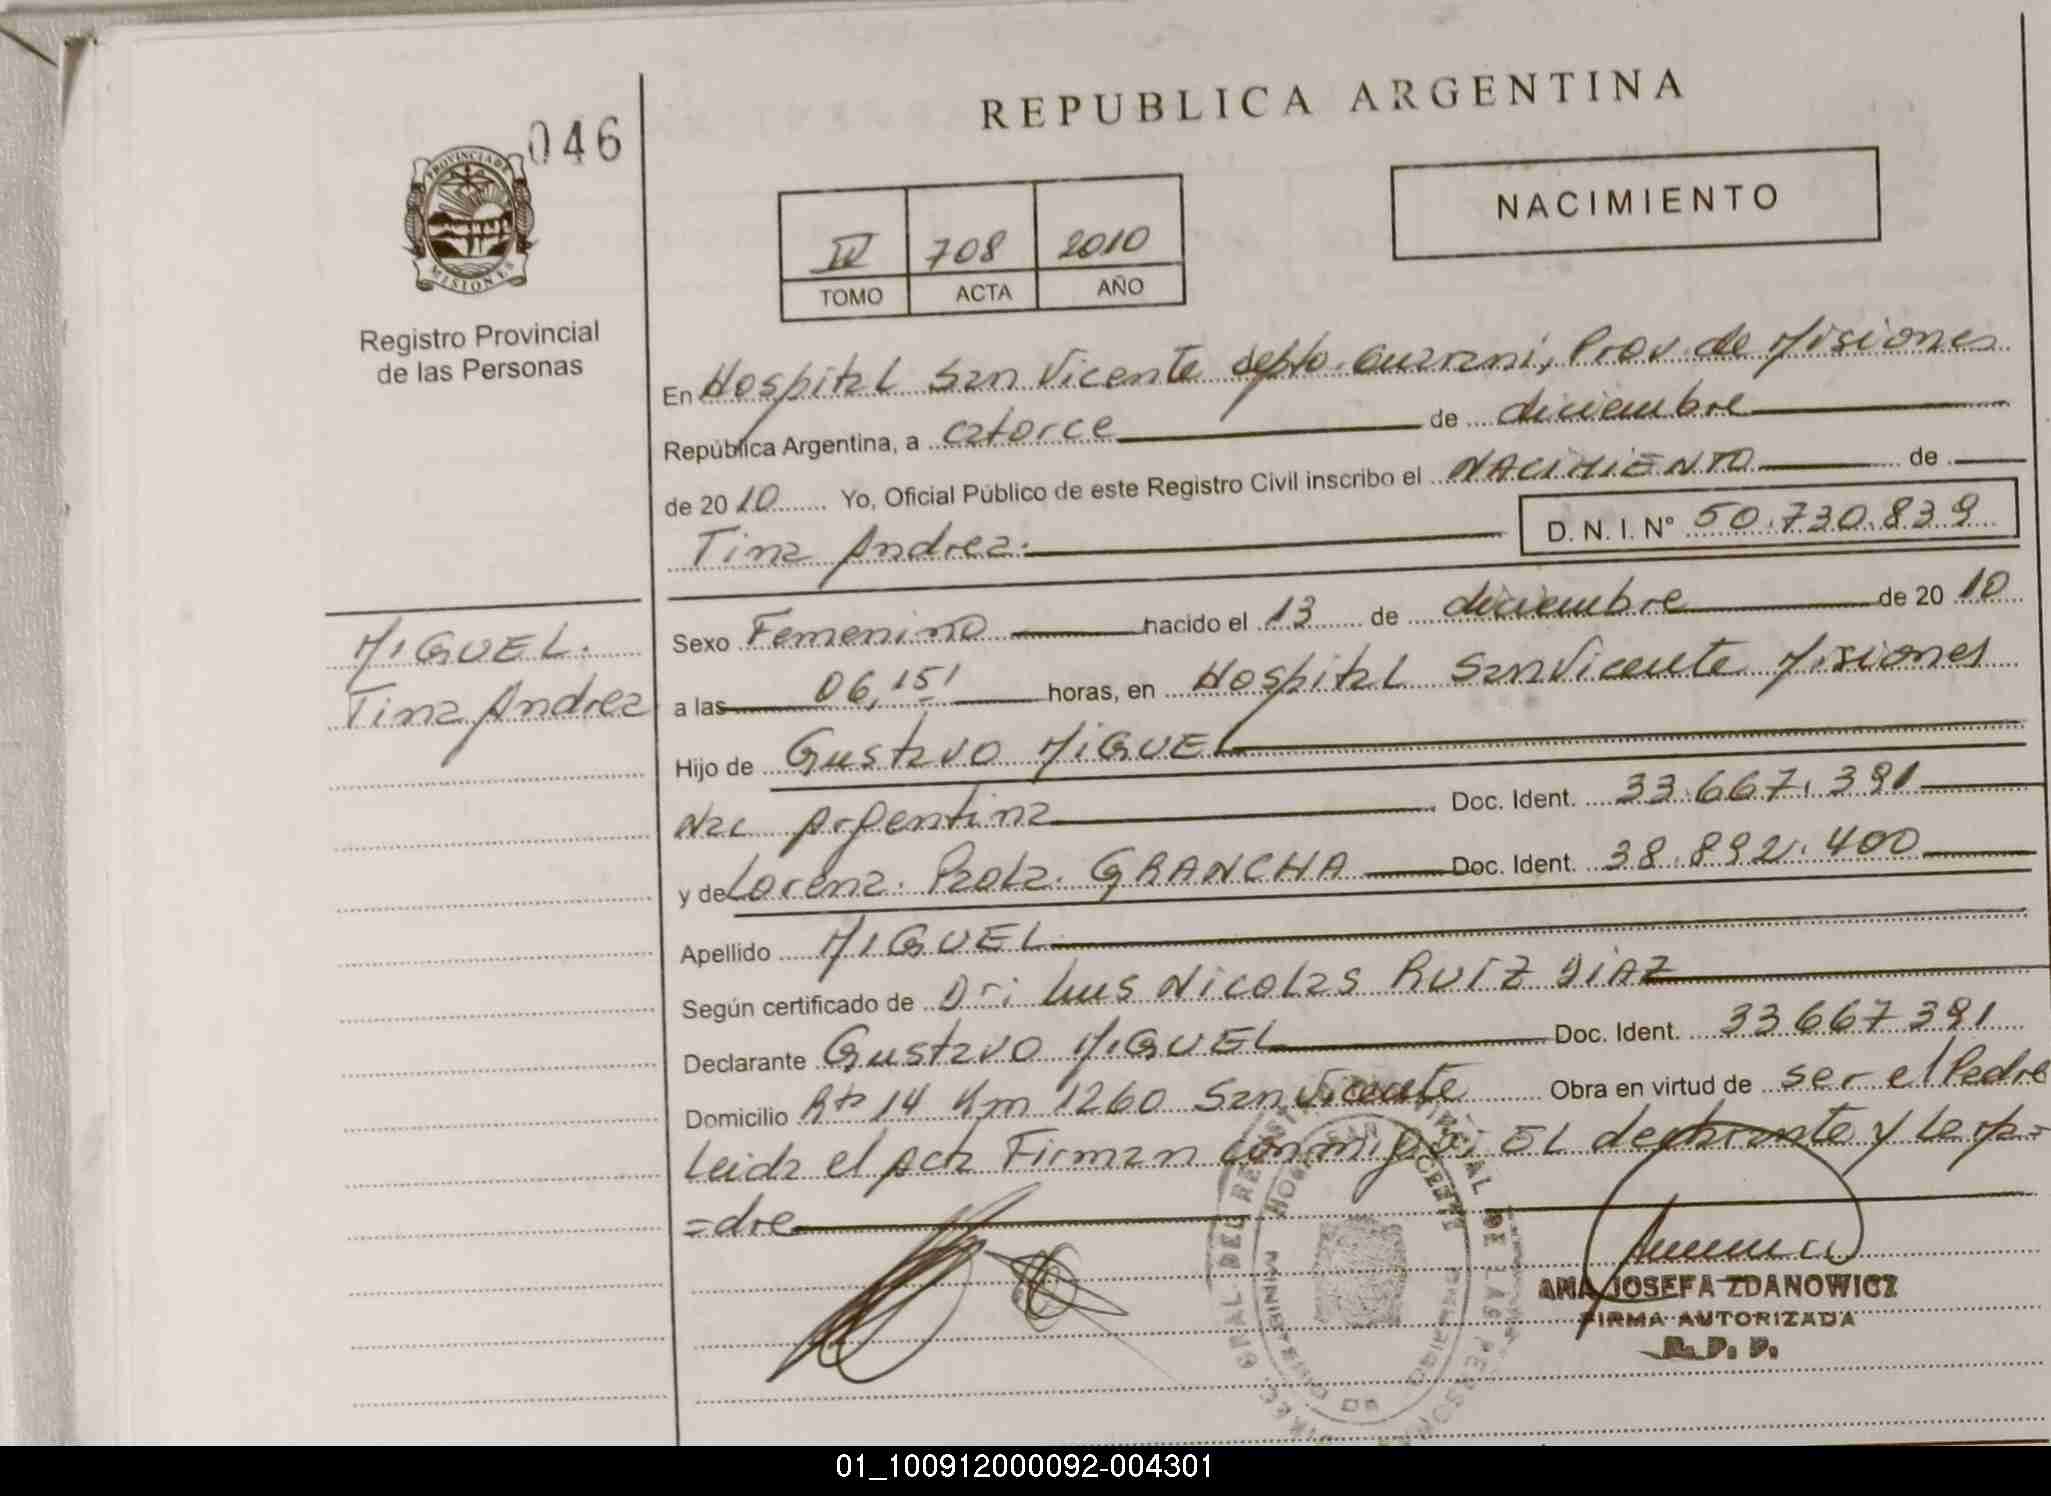 046
PROVINCIA DE
MISIONES
Registro Provincial
de las Personas
REPUBLICA ARGENTINA
NACIMIENTO
IV 708 2010
TOMO ACTA AÑO
En Hospital San Vicente depto. Guarani, Prov. de Misiones
República Argentina, a catorce de diciembre
de 2010 Yo, Oficial Público de este Registro Civil inscribo el NACIMIENTO de
Tina Andrea.
D. N. I. Nº 50.730.839
MIGUEL.
Tina Andrea
Sexo Femenino nacido el 13 de diciembre de 2010
a las 06,15' horas, en Hospital San Vicente Misiones
Hijo de Gustavo MIGUEL
Nac Argentina Doc. Ident. 33.667.391
y de Lorena. Paola. GRANCHA Doc. Ident. 38.892.400
Apellido MIGUEL
Según certificado de Dr: Luis Nicolas RUIZ DIAZ
Declarante Gustavo MIGUEL Doc. Ident. 33667391
Domicilio Rta 14 Km 1260 San Vicente Obra en virtud de ser el Padre
Leida el Acta Firman conmigo: EL declarante y la ma=
=dre
ANA JOSEFA ZDANOWICZ
FIRMA AUTORIZADA
R. P. P.
01_100912000092-004301